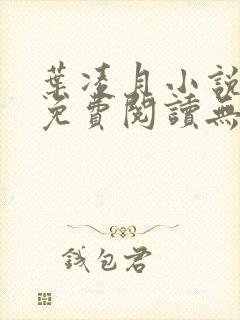 葉凌月小說
免費閱讀無
錢包君